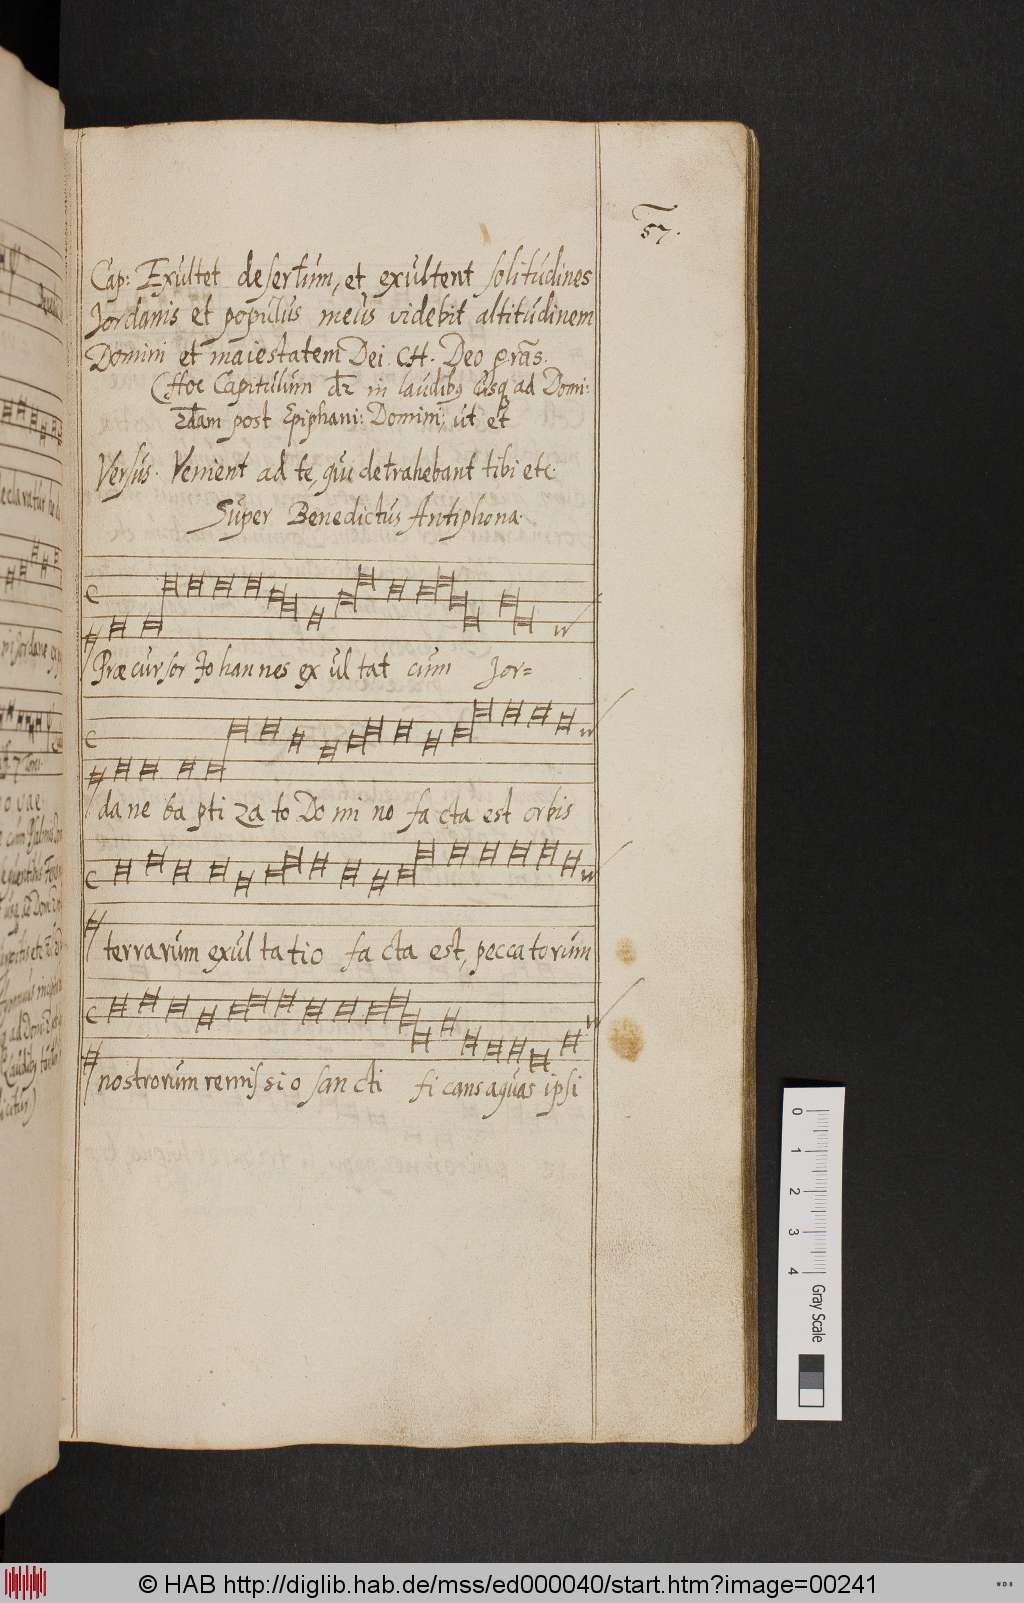 57.
Cap: Exultet desertum, et exultent solitudines
Jordanis et populus meus videbit altitudinem
Domini et maiestatem Dei. CH. Deo gr̃as.
(Hoc Capitulum dr̃ in laudibꝫ usqꝫ ad Domi:
2dam post Epiphani: Domini, ut et
Versus. Venient ad te, qui detrahebant tibi etc.
Super Benedictus Antiphona.
Præ cur sor Jo han nes ex ul tat cum Jor=
da ne ba pti za to Do mi no fa cta est orbis
terrarum exul ta tio fa cta est, peccatorum
nostrorum remis si o san cti fi cans aquas ipsi
0 1 2 3 4
Gray Scale
© HAB http://diglib.hab.de/mss/ed000040/start.htm?image=00241
WDB